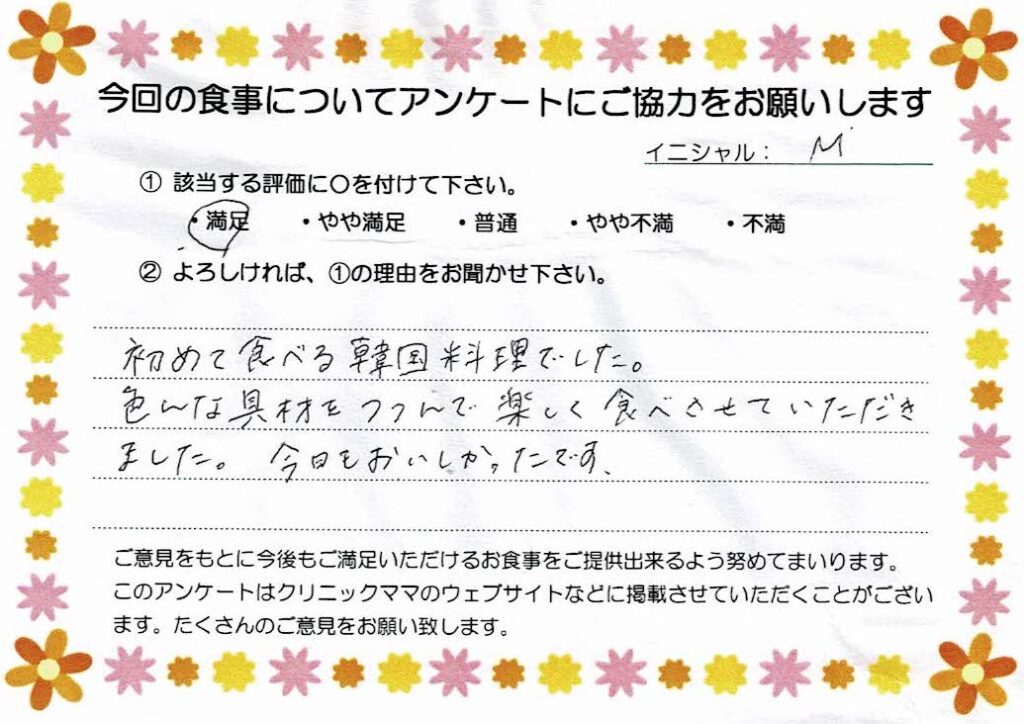 今回の食事についてアンケートにご協力をお願いします
イニシャル： M
① 該当する評価に〇を付けて下さい。
・満足 ・やや満足 ・普通 ・やや不満 ・不満
② よろしければ、①の理由をお聞かせ下さい。
初めて食べる韓国料理でした。
色んな具材をつつんで楽しく食べさせていただき
ました。 今日もおいしかったです、
ご意見をもとに今後もご満足いただけるお食事をご提供出来るよう努めてまいります。
このアンケートはクリニックママのウェブサイトなどに掲載させていただくことがござい
ます。たくさんのご意見をお願い致します。